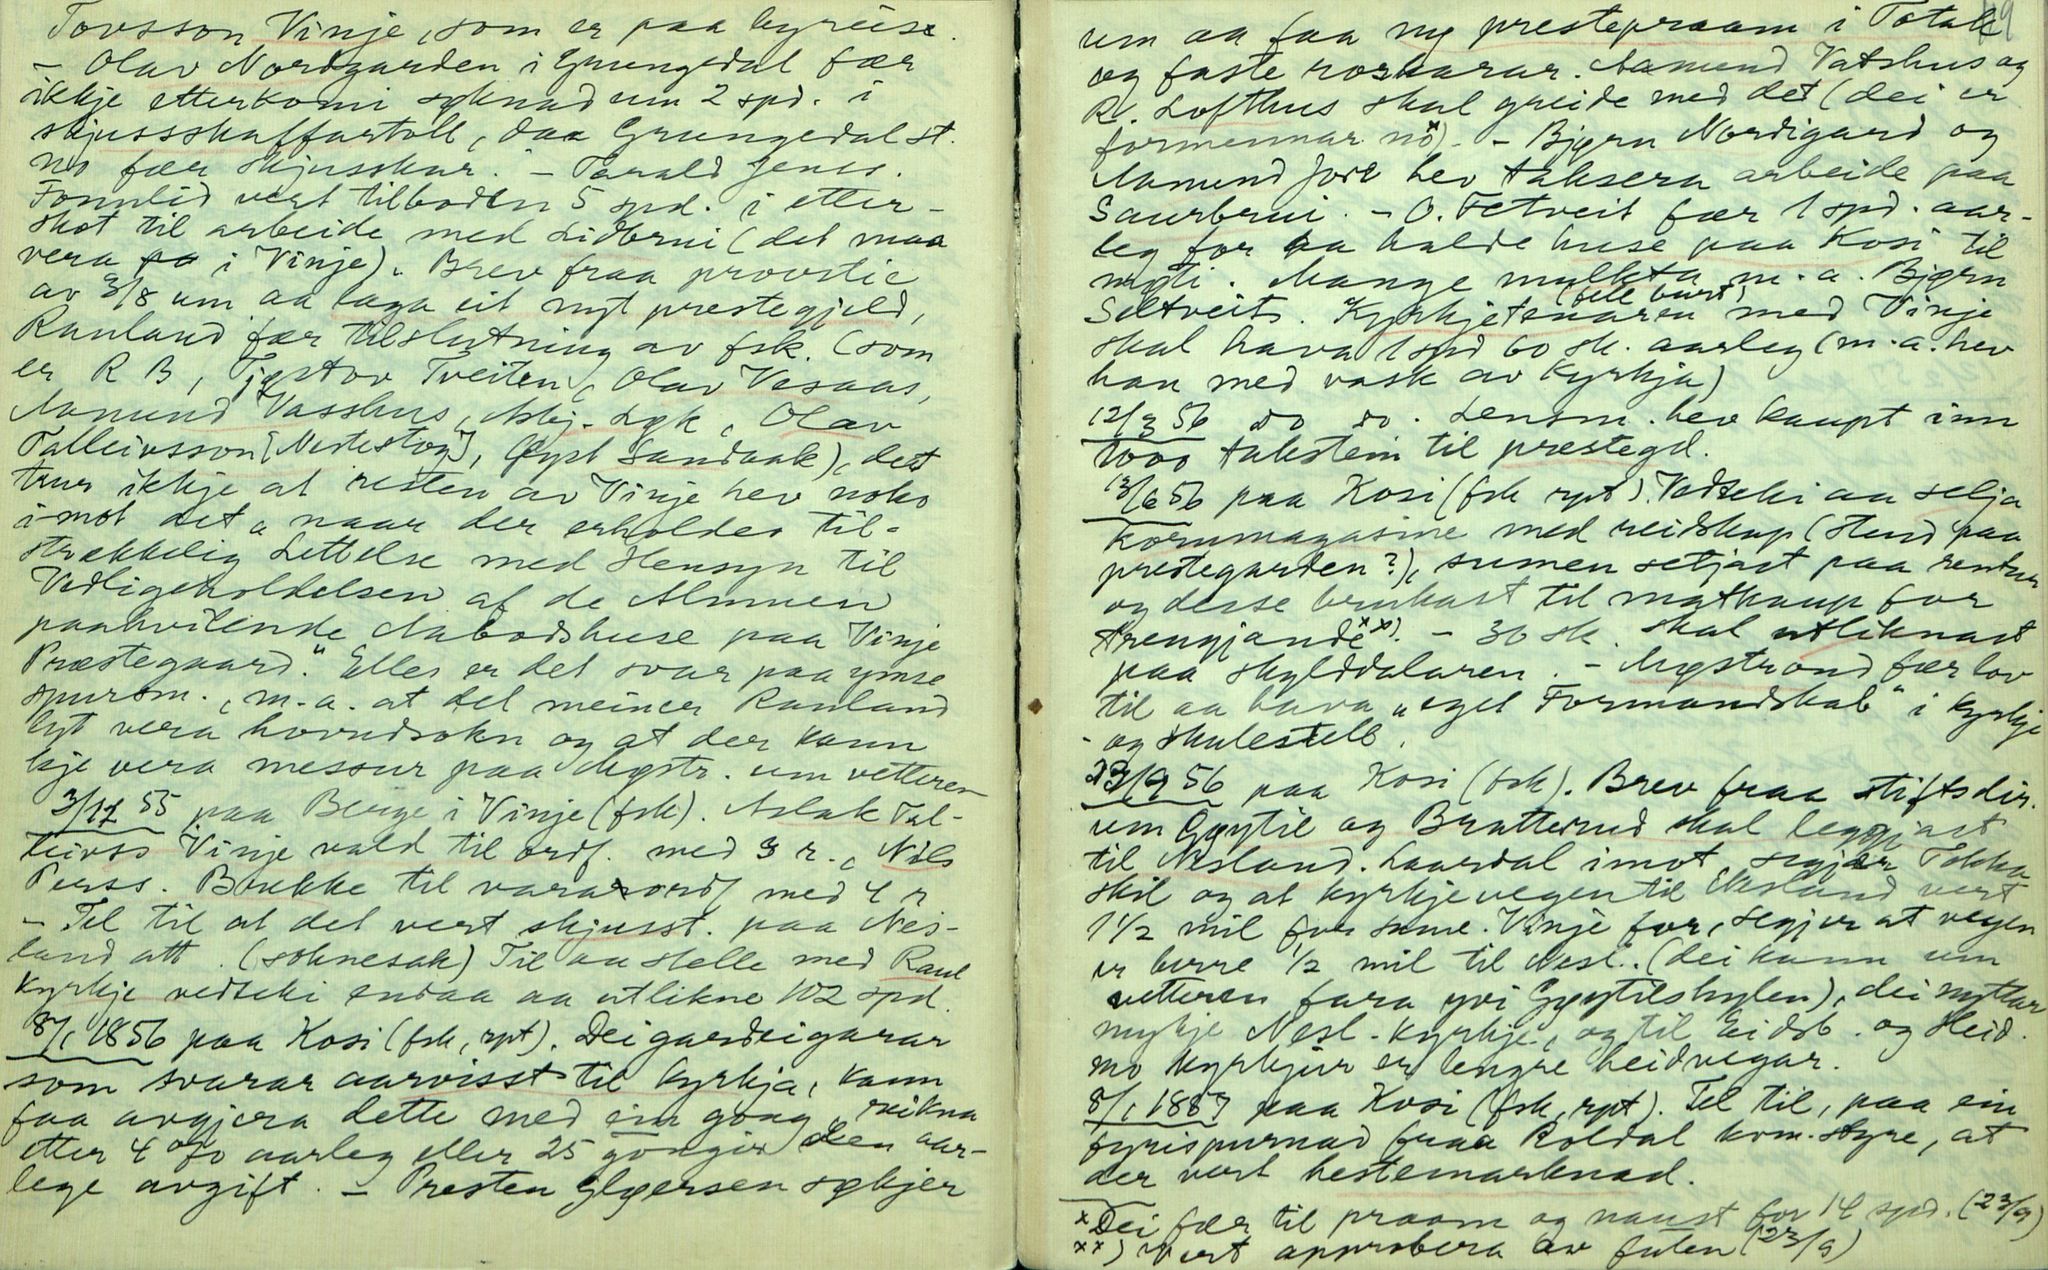 Tovsson Vinje, som er paa kyreise.
– Olav Nordgarden i Grungedal fær
ikkje etterkomi syknad um 2 spd. i
skjussskaffartoll, daa Grungedal st.
no fær skjusskar. – Tarald Jens.
Fonnlid vert tilboden 5 spd. i etter-
skot til arbeide med Lidbrui (det maa
vera i Vinje). Brev fraa provstie
av 3/8 um aa laga eit nytt prestegjeld,
Rauland fær tilslutning av fsk. (som
er R B, Tjøstov Tveiten, Olav Vesaas,
Aamund Vasshus, Asbj. Lgk, Olav
Talleivsson [Nestestog], Øyst Sandaak), det
trur ikkje at resten av Vinje hev noko
imot det „naar der erholdes til-
strækkelig Lettelse med Hensyn til
Vedligeholdelsen af de Almuen
paahvilende Aabodshuse paa Vinje
Præstegaard." Elles er det svar paa ymse
spursm., m.a. at det meiner Rauland
lyt vera hovudsokn og at der kann
kje vera messur paa Møstr. um vetteren
3/12 55 paa Berge i Vinje (fsk). Aslak Tal-
leivss Vinje vald til ordf. med 3 r., Nils
Perss. Brukke til varaordf med 4 r
– Tel til at det vert skjusst. paa Nes-
land att. (soknesak) Til aa stelle med Raul
kyrkje vedteki endaa aa utlikne 102 spd.
8/1 1856 paa Kosi (fsk, rpt). Dei gardeigarar
som svarar aarvisst til kyrkja, kann
faa avgjera dette med ein gong, rekna
etter 4 % aarleg eller 25 gonger den aar-
lege avgift. – Presten Gløersen søkjer
um aa faa ny prestepraam i Totak
og faste roskarar. Aamund Vatshus og
R. Lofthus skal greide med det (dei er
formennar no x). – Bjørn Nordigard og
Aamund Jore hev taksera arbeide paa
Saurbrui. – O. Tetveit fær 1 spd. aar-
leg for aa halde huse paa Kosi til
møti. Mange mulkta m.a. Bjørn
Seltveit. Kyrkjetenaren med Vinje
skal hava 1 spd 60 sk. aarleg (m.a. hev
han med vask av kyrkja)
12/3 56 do do. Lensm. hev kaupt inn
1000 takstein til prestegd.
13/6 56 paa Kosi (fsk rpt). Vedteki aa selja
kornmagasine med reidskap (stend paa
prestegarden?), sumen setjast paa rentur
og desse brukast til matkaup for
trengjande xx). – 36 sk. skal utliknast
paa skylddalaren. – Møstrond fær lov
til aa hava „eget Formandskab" i kyrkje
- og skulestell.
23/9 56 paa Kosi (fsk). Brev fraa stiftsdir.
um Gøytil og Bratterud skal leggjast
til Nesland. Laardal imot, segjer Tokka
skil og at kyrkjevegen til Nesland vert
1 1/2 mil for sume. Vinje for, segjer at vegen
er berre 1/2 mil til Nesl. (dei kann um
vetteren fara yvi Gøytilshylen), dei nyttar
mykje Nesl. kyrkje, og til Eidsb. og Heid.
mo kyrkjur er lengre heidvegar.
8/1 1857 paa Kosi (fsk, rpt). Tel til, paa ein
fyrispurnad fraa Roldal kom.styre, at
der vert hestemarknad.
x Dei fær til praam og naust for 14 spd. (23/9)
xx) Vert approbera av futen (23/9)